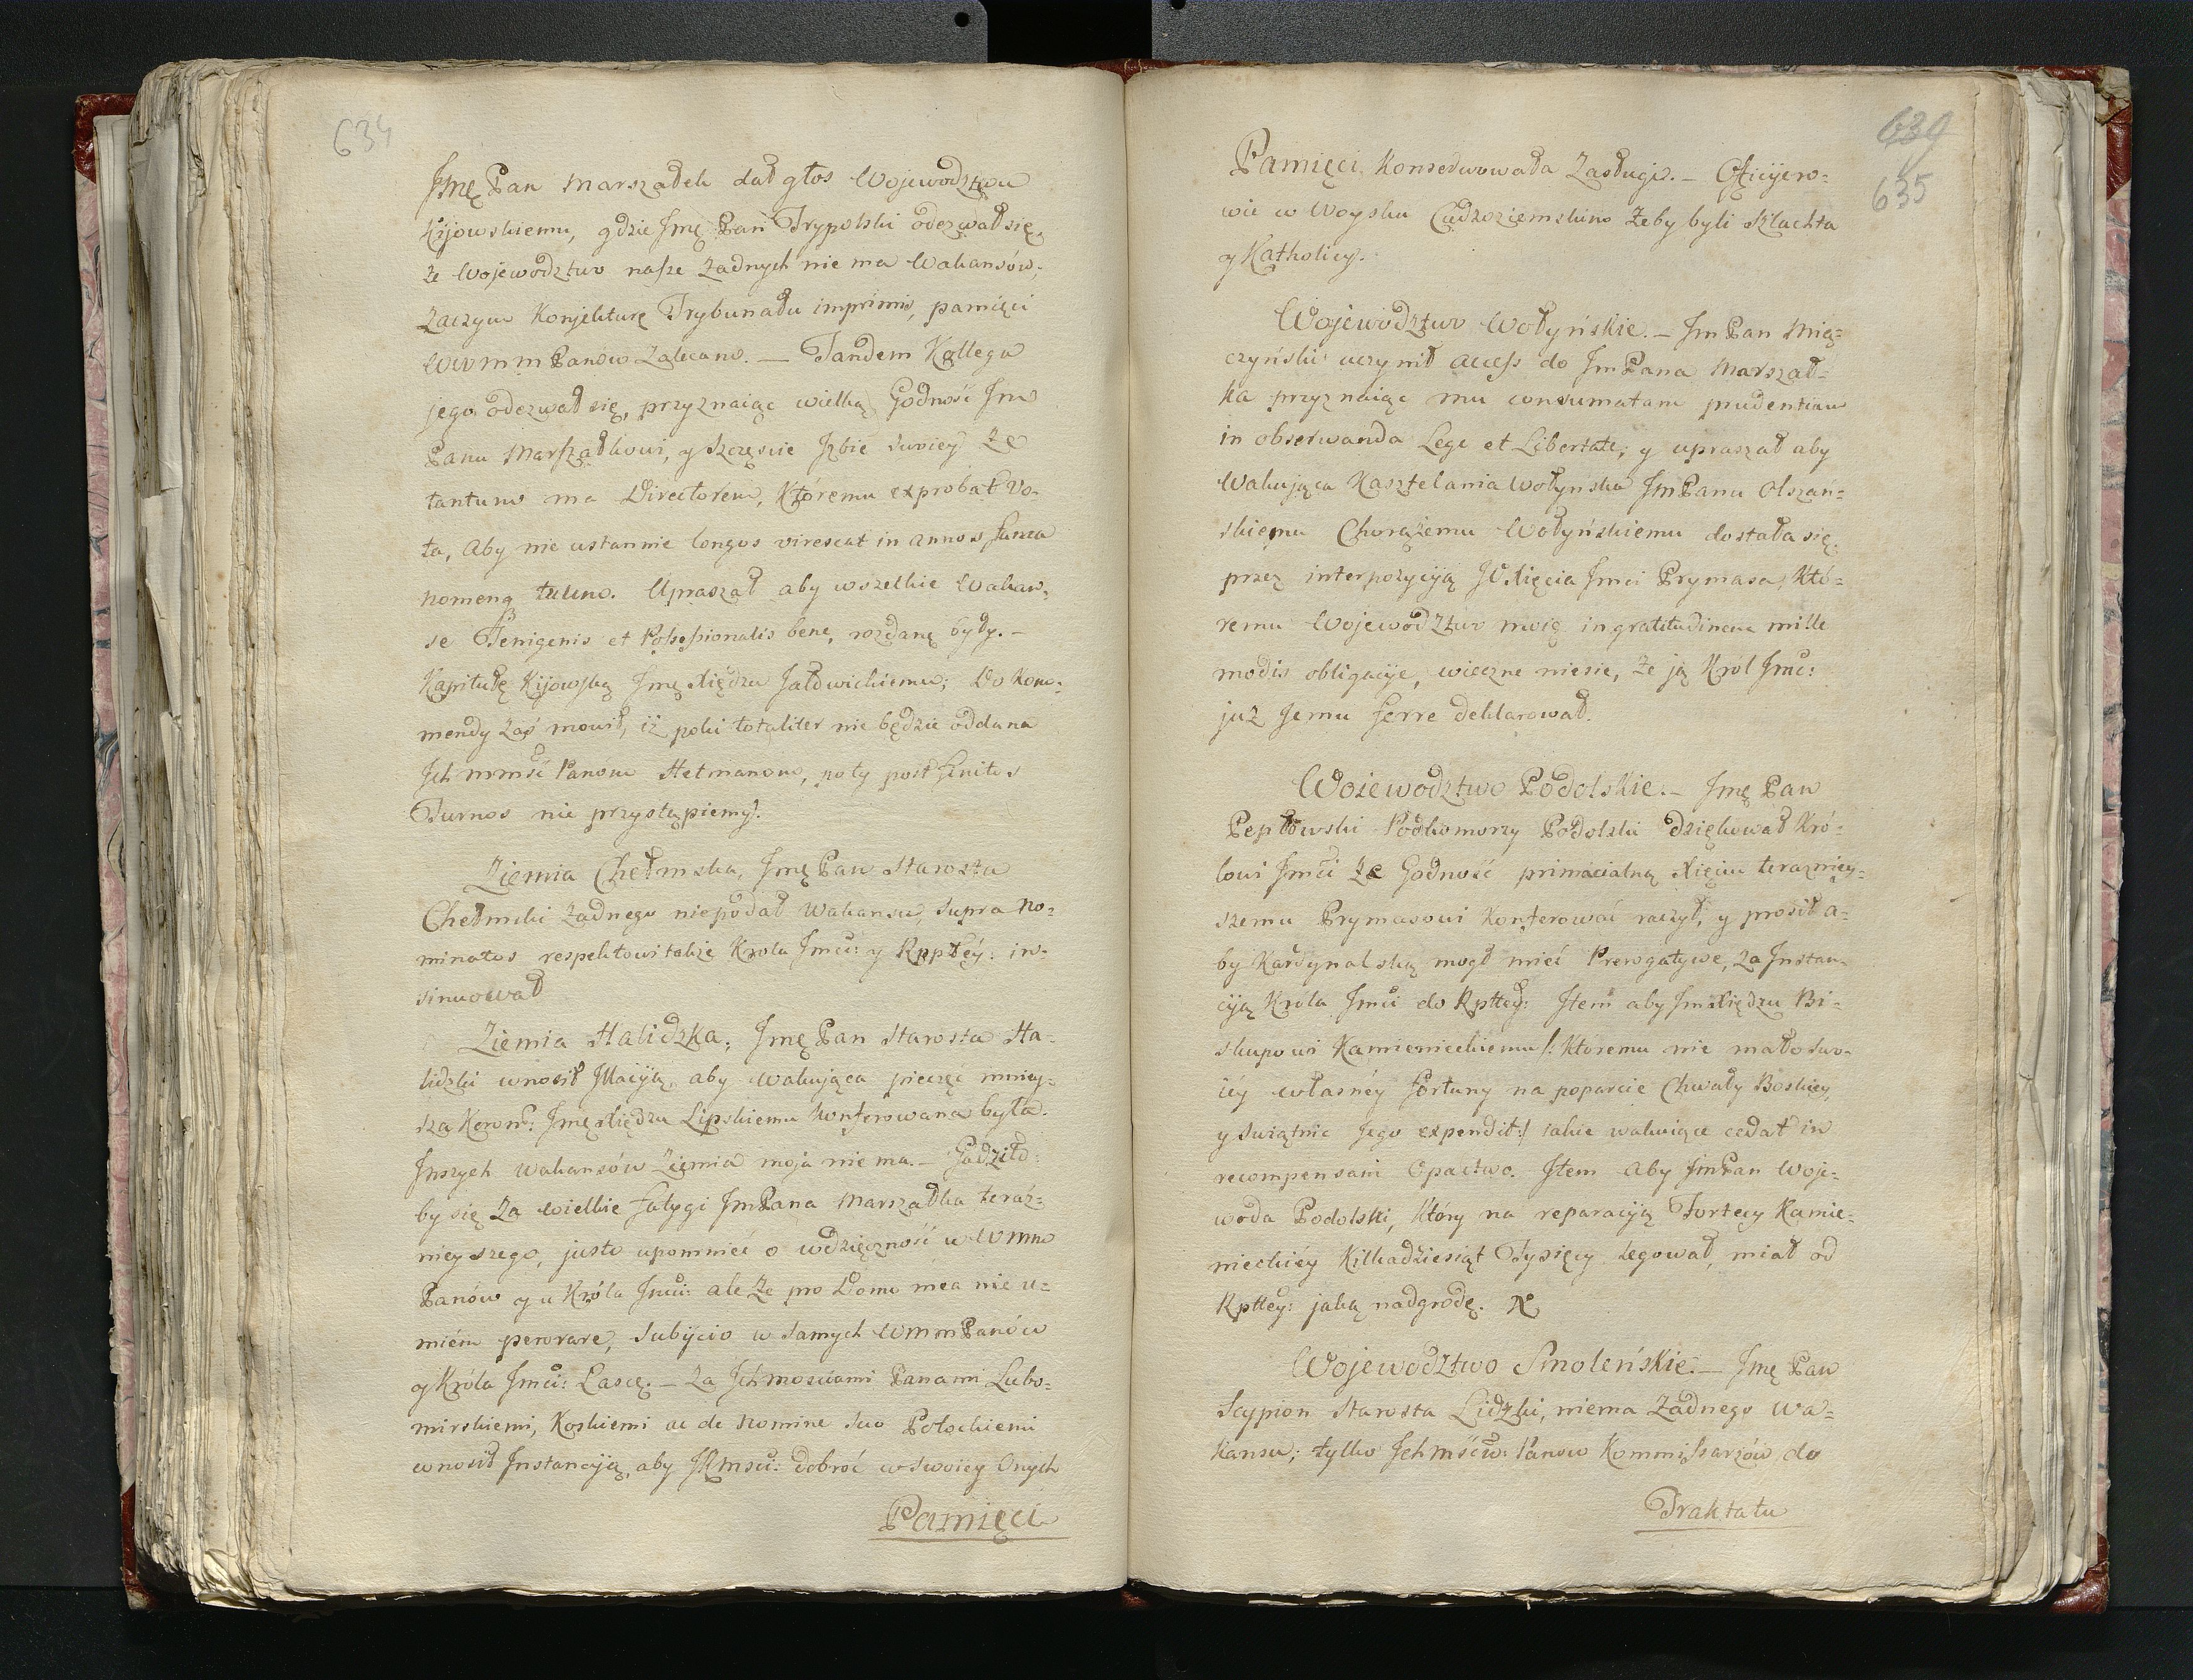 634
Jmę Pan Marszałek dał głos Wojewodztwu
Kijowskiemu, gdzie Jmę Pan Trypolski odezwał się,
że Wojewodztwo nasze żadnych nie ma Wakansów,
zaczym Konjekturę Trybunału imprimis, pamięci
WWmm Panow Zalecam. — Tandem Kollega
jego odezwał się, przyznaiąc wielką Godność Jm
Panu Marszałkowi, y Szczęscie Jzbie swoiey że
tantum ma Directorem, Któremu exprobat Vo-
ta, Aby nie ustannie longos virescat in annos Fama
nomenq tuum. Upraszał aby wszelkie Wakan-
se Jenigenis et Possessionatis bene, rozdanę były. —
Kapitułę Kijowską Jmę Xiędzu Jałdwickiemu; Do Kom-
mendy Zaś mowił, iż poki totaliter nie będzie oddana
Jch mmsć Panom Hetmanom, poty post finitos
Turnos nie przystąpiemy.
Ziemia Chełmska, Jmę Pan Starosta
Chełmski żadnego niepodał Wakansu, Supra No-
minatos respektowi także Krola Jmci: y Rppłéy: in-
sinuował
Ziemia Halidzka; Jmę Pan Starosta Ha-
lidzki wnosił Jllacyią, aby wakująca pieczęć mniey-
sza Koron: Jmę Xiędzu Lipskiemu Konferowana była.
Jnszych Wakansów Ziemia moja nie ma. — Godziło
by się za wielkie Fatygi JmPana Marszałka teráz-
nieyszego, justo upomnieć o wdzięczność u Wmm
Panów y u Króla Jmci: ale że pro Domo mea nie u-
miém perorare, Subijcio w samych WmmPanów
y Króla Jmci: Łascę. — Za Jchmosciami Panami Lubo-
mirskiemi, Koskiemi ac de nomine suo Potockiemi
wnosił Jnstancyją, aby JKmsci: dobroć w swoiey Onych
Pamięci
639
635
Pamięci Konserwowała Zasługi. — Officyero-
wie w Woysku Cudzoziemskim żeby byli Szlachta
y Katholicy.
Wojewodztwo Wołyńskie. — Jm Pan Mię-
czyński uczynił access do JmPana Marszał-
ka przyznaiąc mu consumatam prudentiam
in observanda Lege et Libertate; y upraszał aby
Wakująca Kasztelania Wołyńska JmPanu Olszań-
skiemu Chorążemu Wołyńskiemu dostała się,
przez interpozycyją JO Xięcia Jmci Prymasa, Któ-
remu Wojewodztwo moię ingratitudinem mille
modis obligacyje, wieczne niesie, że ją Król Jmć:
już Jemu ferre deklarował.
Woiewodztwo Podolskie. — Jmę Pan
Pepłowski Podkomorzy Podolski dziękował Kró-
lowi Jmci że Godność primacialną Xięciu terazniey-
szemu Prymasowi Konferować raczył, y prosił a-
by Kardynalską mogł mieć Prerogatywe, za Jnstan-
cyją Króla Jmci do Rpttey: Jtem aby Jmxiędzu Bi-
skupowi Kamienieckiemu /: Któremu nie mało swo-
iéy własnéy fortuny na poparcie Chwały Boskiey,
y Swiątnic Jego expendit:/ iakie wakuiące cedat in
recompensam Opactwo. Jtem Aby JmPan Woje-
woda Podolski, Który na reparacyją Fortecy Kamie-
nieckiéy Kilkadziesiąt Tysięcy Legował, miał od
Rpttey: jaką nadgrodę.
Wojewodztwo Smoleńskie. — Jmę Pan
Scypion Starosta Lidzki, niema żadnego Wa-
kansu; tylko Jchmsciw: Panow Kommissarzów do
Traktatu